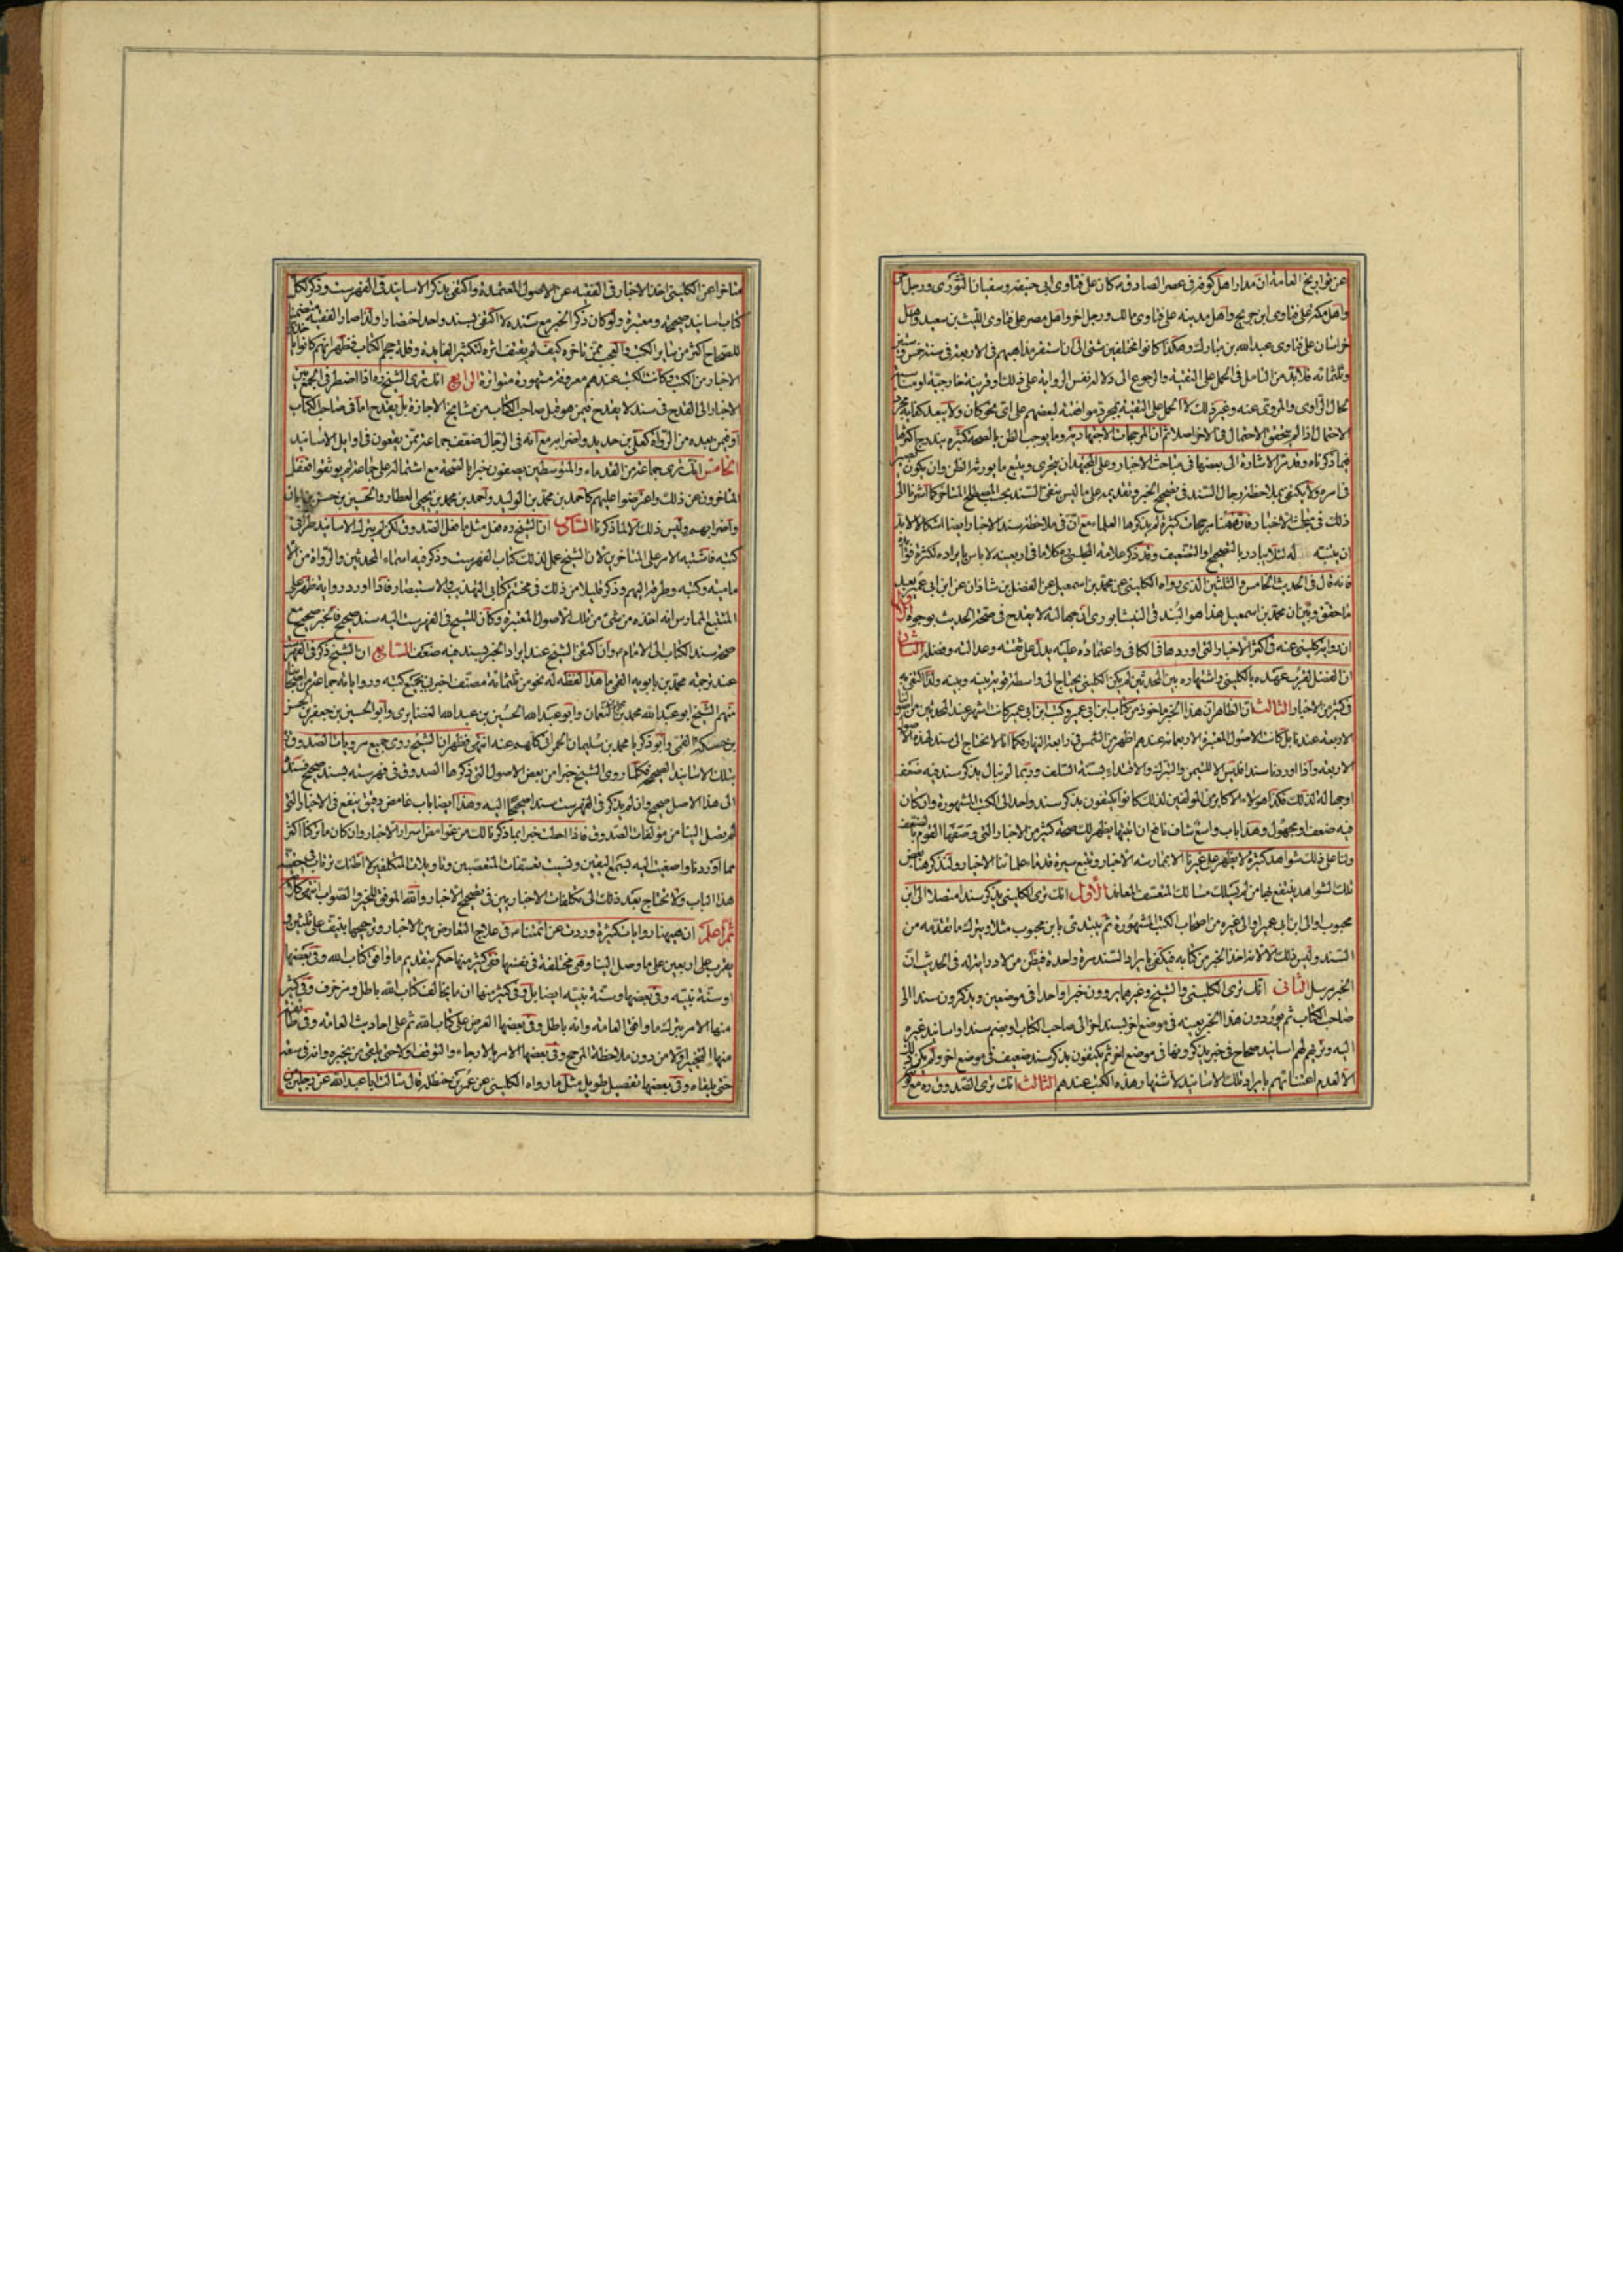 عن تواريخ العامة ان مدار اهل كوفه فى عصر الصادق ع كان على فتاوى ابى حنيفه وسفيان الثورى ورجل اخر
واهل مكه على فتاوى ابن جريج واهل مدينه على فتاوى مالك ورجل اخر واهل مصر على فتاوى الليث بن سعيد واهل
خراسان على فتاوى عبدالله بن مبارك وهكذا كانوا مختلفين شتى الى ان استقر مذاهبهم فى الاربعة فى سنة خمس وستين
وثلثمائه فلابد من التامل فى الحمل على التقية والرجوع الى دلالة نفس الرواية على ذلك او قرينة خارجية او
حال الراوى والمروى عنه وغير ذلك لا الحمل على التقية بمجرد موافقة لبعضهم على اى نحو كان ولا يبعد كفاية مجرد
الاحتمال اذا لم يتحقق الاحتمال فى الاخر اصلا ثم ان المرجحات الاجتهادية وما يوجب الظن بالصحة كثيرة يندرج اكثرها
فيما ذكرناه وقد مر الاشارة الى بعضها فى مباحث الاخبار وعلى المجتهد ان يتحرى ويتبع ما يورث الظن وان يكون
فى امره ولا يكتفى بملاحظة رجال السند فى تصحيح الخبر وتقديمه على ما ليس بنقى السند بحسب المصطلح المتاخر كما اشرنا الى
ذلك فى مباحث الاخبار فان هنا مرجحات كثيرة لم يذكرها العلماء مع ان فى ملاحظة سند الاخبار ايضا اشكالا لابد
ان يتنبه له لئلا يبادر بالتصحيح او التضعيف وقد ذكر علامة المجلسى ره كلاما فى اربعينه لا باس بايراده لكثرة فوايده
فانه قال فى الحديث الخامس والثلثين الذى رواه الكلينى عن محمد بن اسمعيل عن الفضل بن شاذان عن ابن ابى عمير بعد
ما حقق وبين ان محمد بن اسمعيل هذا هو البندقى النيشابورى ان جهالته لا يقدح فى صحة الحديث بوجوه الاول
ان رواية كلينى عنه فى اكثر الاخبار التى اوردها فى الكافى واعتماده عليه يدل على ثقته وعدالته وفضله الثانى
ان الفضل لقرب عهده بالكلينى واشتهاره بين المحدثين لم يكن الكلينى يحتاج الى واسطة قوية بينه وبينه ولذا اكتفى به
فى كثير من الاخبار الثالث ان الظاهر ان هذا الخبر ماخوذ من كتاب ابن ابى عمير وكتب ابن ابى عمير كانت اشهر عند المحدثين من اصول
الاربعة عندنا بل كانت الاصول المعتبرة الاربعمائة عندهم اظهر من الشمس فى رابعة النهار فكما انا لا نحتاج الى سند لهذه الاصول
الاربعة واذا اوردنا سندا فليس الا للتيمن والتبرك والاقتداء بسنة السلف وربما لم نبال بذكر سند فيه ضعف
او جهالة لذلك فكذا هؤلاء الاكابر من المؤلفين لذلك كانوا يكتفون بذكر سند واحد الى الكتب المشهورة وان كان
فيه ضعف او مجهول وهذا باب واسع شاف نافع ان اتيتها يظهر لك صحة كثير من الاخبار التى وصفها القوم بالضعف
ولنا على ذلك شواهد كثيرة لا يظهر على غيرنا الا بممارسة الاخبار وتتبع سيرة قدماء علمائنا الاخيار ولنذكر هنا بعض
تلك الشواهد ينتفع بها من لم يسلك مسالك المتعسف المعاند الاول انك ترى الكلينى يذكر سندا متصلا الى ابن
محبوب او الى ابن ابى عمير او الى غيره من اصحاب الكتب المشهورة ثم يبتدئ بابن محبوب مثلا ويترك ما تقدمه من
السند وليس ذلك الا لانه اخذ الخبر من كتابه فيكتفى بايراد السند مرة واحدة فيظن من لا دراية له فى الحديث ان
الخبر مرسل الثانى انك ترى الكلينى والشيخ وغيرهما يروون خبرا واحدا فى موضعين ويذكرون سندا الى
صاحب الكتاب ثم يوردون هذا الخبر بعينه فى موضع اخر بسند اخر الى صاحب الكتاب او يضم سندا او اسانيد غيره
اليه وتراهم لهم اسانيد صحاح فى خبر يذكرونها فى موضع اخر ثم يكتفون بذكر سند ضعيف فى موضع اخر ولم يكن ذلك
الا لعدم اعتنائهم بايراد تلك الاسانيد لاشتهار هذه الكتب عندهم الثالث انك ترى الصدوق ره مع كونه
متاخرا عن الكلينى اخذ الاخبار فى الفقيه عن الاصول المعتمدة واكتفى بذكر الاسانيد فى الفهرست وذكر لكل
كتاب اسانيد صحيحة ومعتبرة ولو كان ذكر الخبر مع سنده لاكتفى بسند واحد اختصارا ولذا صار الفقيه متضمنا
للصحاح اكثر من ساير الكتب والعجب ممن تاخره كيف لم يقتف اثره لتكثير الفايدة وقلة حجم الكتاب فظهر انهم كانوا
الاخبار من الكتب وكانت الكتب عندهم معروفة مشهورة متواترة الرابع انك ترى الشيخ ره اذا اضطر فى الجمع بين
الاخبار الى القدح فى سند لا يقدح فيمن هو قبل صاحب الكتاب من مشايخ الاجازة بل يقدح اما فى صاحب الكتاب
او فيمن بعده من الرواة كعلى بن حديد واضرابه مع انه فى الرجال ضعف جماعة ممن يقعون فى اوايل الاسانيد
الخامس انك ترى جماعة من القدماء والمتوسطين يصفون خبرا بالصحة مع اشتماله على جماعة لم يوثقوا فغفل
المتاخرون عن ذلك واعترضوا عليهم كاحمد بن محمد بن الوليد واحمد بن محمد بن يحيى العطار والحسين بن حسن بن ابان
واضرابهم وليس ذلك الا لما ذكرنا السادس ان الشيخ ره فعل مثل ما فعل الصدوق لكن لم يترك الاسانيد طرا فى
كتبه فاشتبه الامر على المتاخرين لان الشيخ عمل لذلك كتاب الفهرست وذكر فيه اسماء المحدثين والرواة من الا
مامية وكتبهم وطرقه اليهم وذكر قليلا من ذلك فى مختتم كتابى التهذيب والاستبصار فاذا اورد رواية ظهر على
المتتبع الممارس انه اخذه من شئ من تلك الاصول المعتبرة وكان للشيخ فى الفهرست اليه سند صحيح فالخبر صحيح مع
صحة سند الكتاب الى الامام وان اكتفى الشيخ عند ايراد الخبر بسند فيه ضعف السابع ان الشيخ ذكر فى الفهرست
عند ترجمة محمد بن بابويه القمى ما هذا لفظه له نحو من ثلثمائة مصنف اخبرنى بجميع كتبه ورواياته جماعة من اصحابنا
منهم الشيخ ابو عبدالله محمد بن محمد بن النعمان وابو عبدالله الحسين بن عبيدالله الغضايرى وابو الحسين بن جعفر بن الحسن
بن حسكه القمى وابو زكريا محمد بن سليمان الحمرانى كلهم عنه انتهى فظهر ان الشيخ روى جميع مرويات الصدوق
بتلك الاسانيد الصحيحة فكلما روى الشيخ خبرا من بعض الاصول التى ذكرها الصدوق فى فهرسته بسند صحيح فسنده
الى هذا الاصل صحيح وان لم يذكر فى الفهرست سندا صحيحا اليه وهذا ايضا باب غامض دقيق ينفع فى الاخبار التى
لم يصل الينا من مؤلفات الصدوق فاذا احطت خبرا بما ذكرنا لك من غوامض اسرار الاخبار وان كان ما تركنا اكثر
مما اوردنا واصغيت اليه بسمع اليقين ونسيت تعسفات المتعصبين وتاويلات المتكلفين لا اظنك ترتاب فى حقية
هذا الباب ولا تحتاج بعد ذلك الى تكلفات الاخباريين فى تصحيح الاخبار والله الموفق للخير والصواب انتهى كلامه
ثم اعلم ان هيهنا روايات كثيرة وردت عن ائمتنا ع فى علاج التعارض بين الاخبار وترجيحها ينيف على ثلثين
يقرب على اربعين على ما وصل الينا وهى مختلفة فى نفسها ففى كثير منها حكم بتقديم ما وافق كتاب الله وفى بعضها
او سنة نبيه وفى بعضها وسنة نبيه ايضا بل وفى كثير منها ان ما يخالف كتاب الله باطل ومزخرف وفى كثير
منها الامر بترك ما وافق العامة وانه باطل وفى بعضها العرض على كتاب الله ثم على احاديث العامة وفى
منها التخيير اولا من دون ملاحظة المرجح وفى بعضها الامر بالارجاء والتوقف اولا حتى يلقى من يخبره وانه فى سعة
حتى يلقاه وفى بعضها تفصيل طويل مثل ما رواه الكلينى عن عمر بن حنظلة قال سالت ابا عبدالله عن رجلين